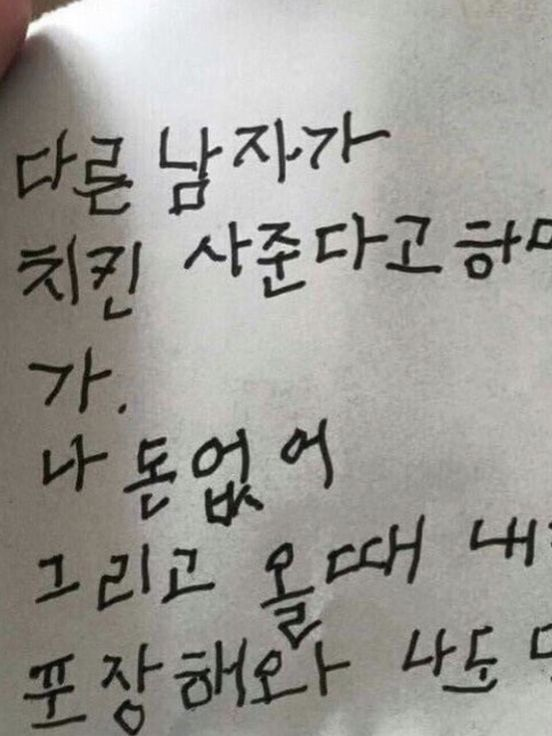 다른 남자가
치킨 사준다고
가.
나 돈없어
그리고 올때
포장해와 나도